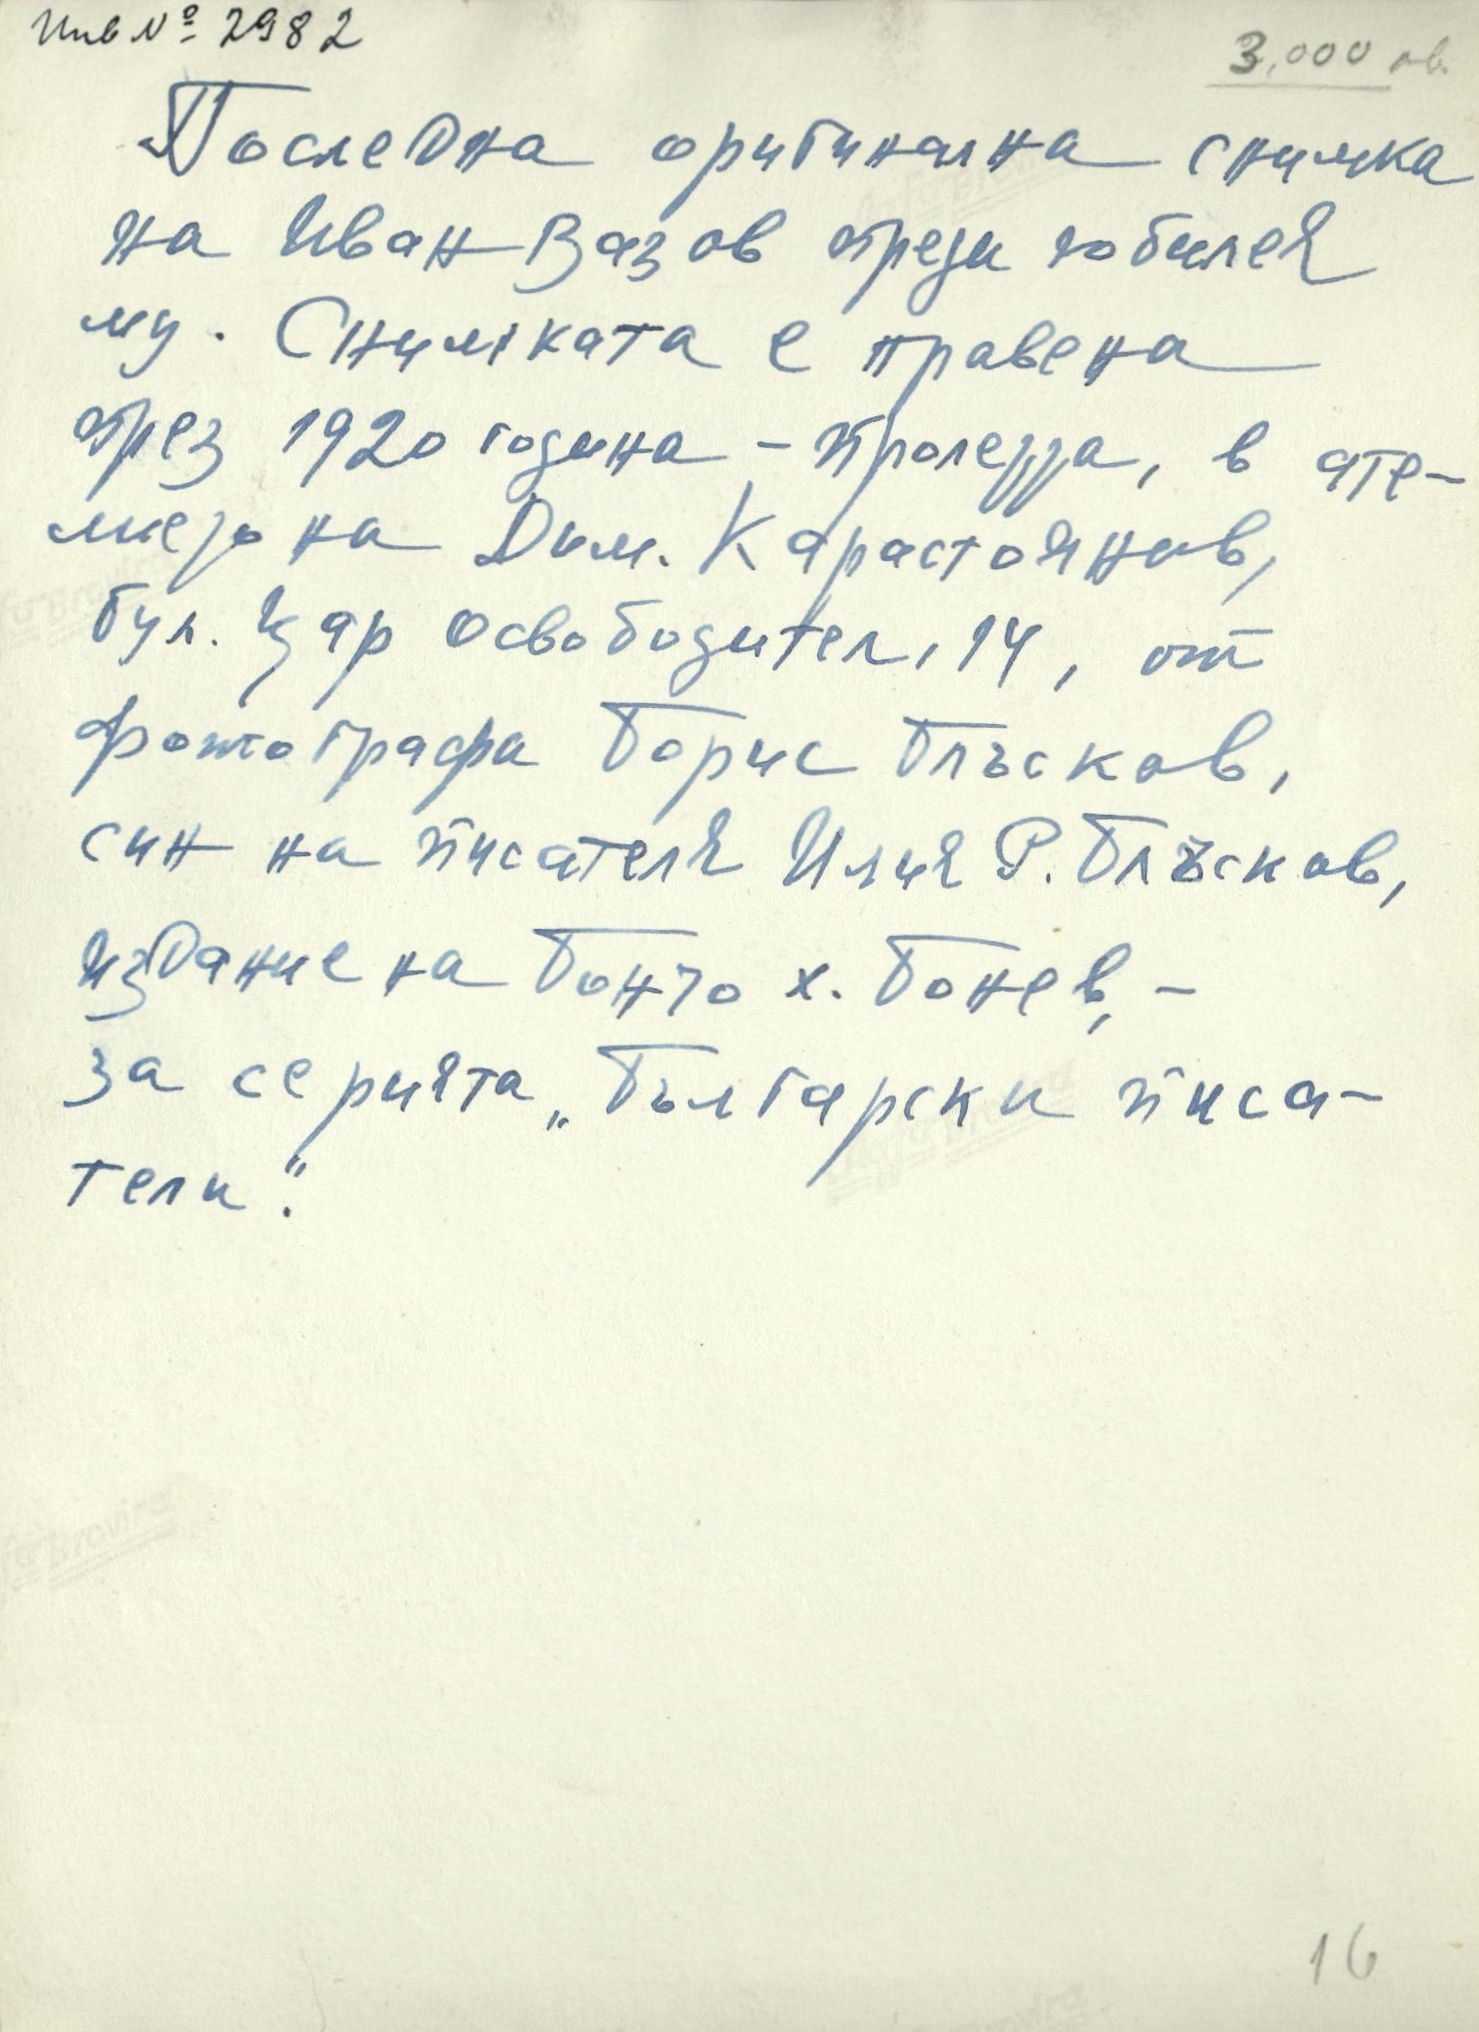 Инв № 2982
3.000 лв.
Последна оригинална снимка
на Иван Вазов преди юбилея
му. Снимката е правена
през 1920 година – пролезза, в ате-
лиезо на Дим. Карастоянов,
бул. Цар Освободител, 14, от
фотографа Борис Блъсков,
син на писателя Илия Р. Блъсков,
издание на Бончо х. Бонев, –
за серията „Български писа-
тели".
16